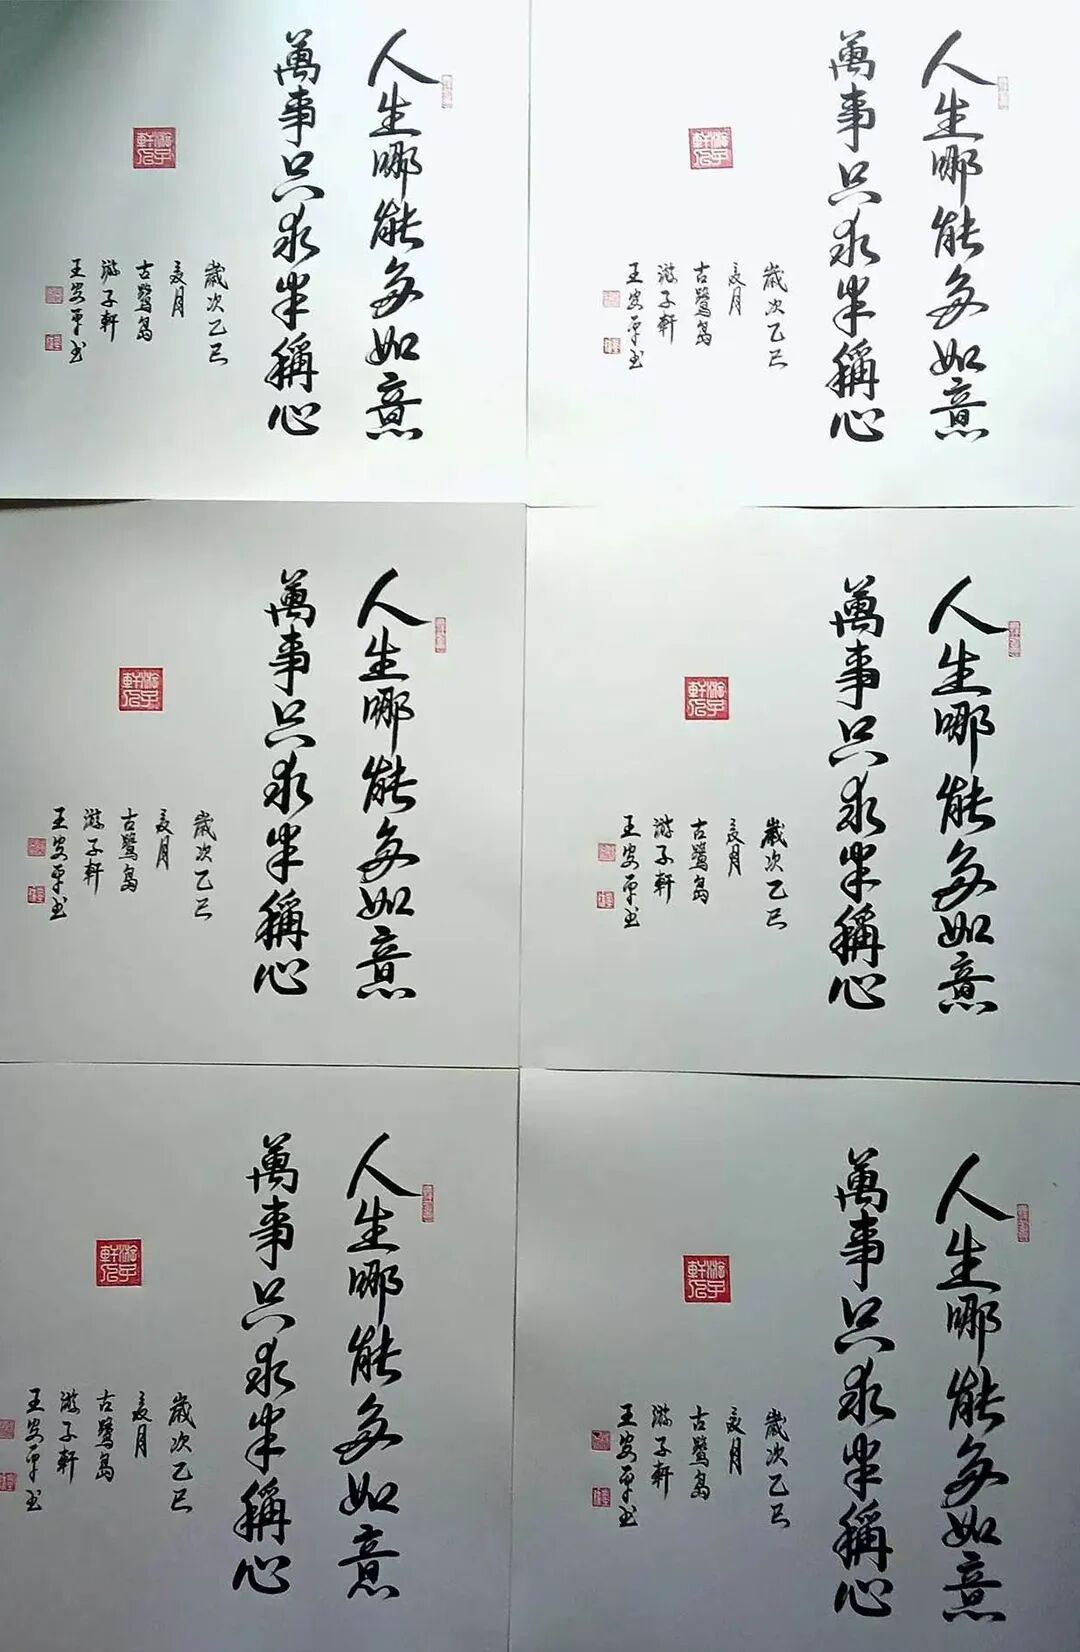 人生哪能多如意
萬事只求半稱心
歲次乙巳
夏月
古鷺島
游子軒
王安平书
游子軒印
人生哪能多如意
萬事只求半稱心
歲次乙巳
夏月
古鷺島
游子軒
王安平书
游子軒印
人生哪能多如意
萬事只求半稱心
歲次乙巳
夏月
古鷺島
游子軒
王安平书
游子軒印
人生哪能多如意
萬事只求半稱心
歲次乙巳
夏月
古鷺島
游子軒
王安平书
游子軒印
人生哪能多如意
萬事只求半稱心
歲次乙巳
夏月
古鷺島
游子軒
王安平书
游子軒印
人生哪能多如意
萬事只求半稱心
歲次乙巳
夏月
古鷺島
游子軒
王安平书
游子軒印